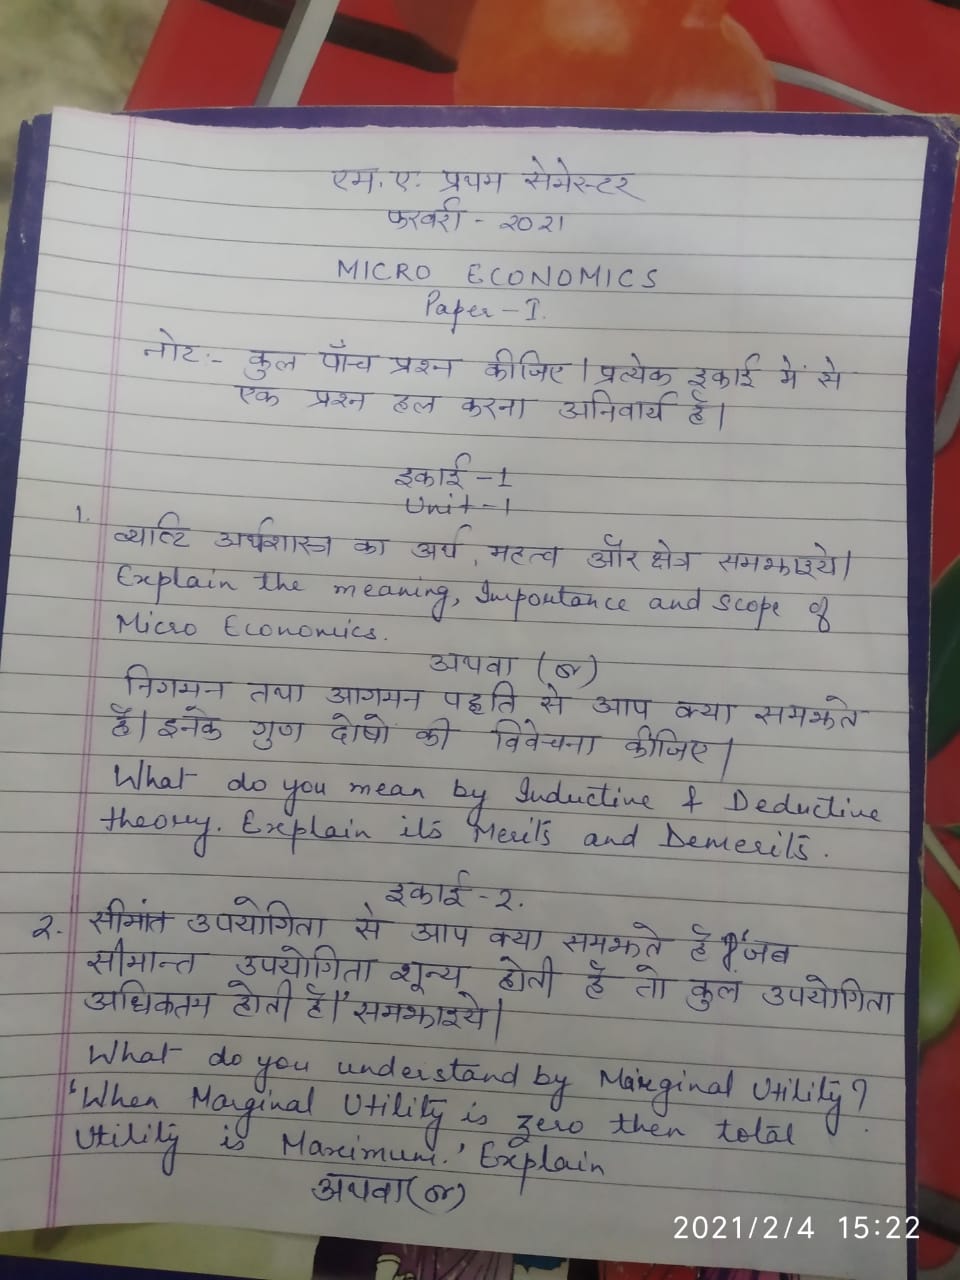 एम. ए. प्रथम सेमेस्टर
फरवरी - २०२1
MICRO ECONOMICS
Paper - I.
नोट:- कुल पाँच प्रश्न कीजिए। प्रत्येक इकाई में से
एक प्रश्न हल करना अनिवार्य है।
इकाई - 1
Unit - 1
1.
व्यष्टि अर्थशास्त्र का अर्थ, महत्व और क्षेत्र समझाइये।
Explain the meaning, Importance and scope of
Micro Economics.
अथवा (or)
निगमन तथा आगमन पद्दति से आप क्या समझते
है। इनके गुण दोषो की विवेचना कीजिए।
What do you mean by Inductive & Deductive
theory. Explain its Merits and Demerits.
इकाई - २.
२. सीमांत उपयोगिता से आप क्या समझते है? "जब
सीमान्त उपयोगिता शून्य होती है तो कुल उपयोगिता
अधिकतम होती है।" समझाइये।
What do you understand by Marginal Utility?
'When Marginal Utility is zero then total
Utility is Maximum.' Explain
अथवा (or)
2021/2/4 15:22